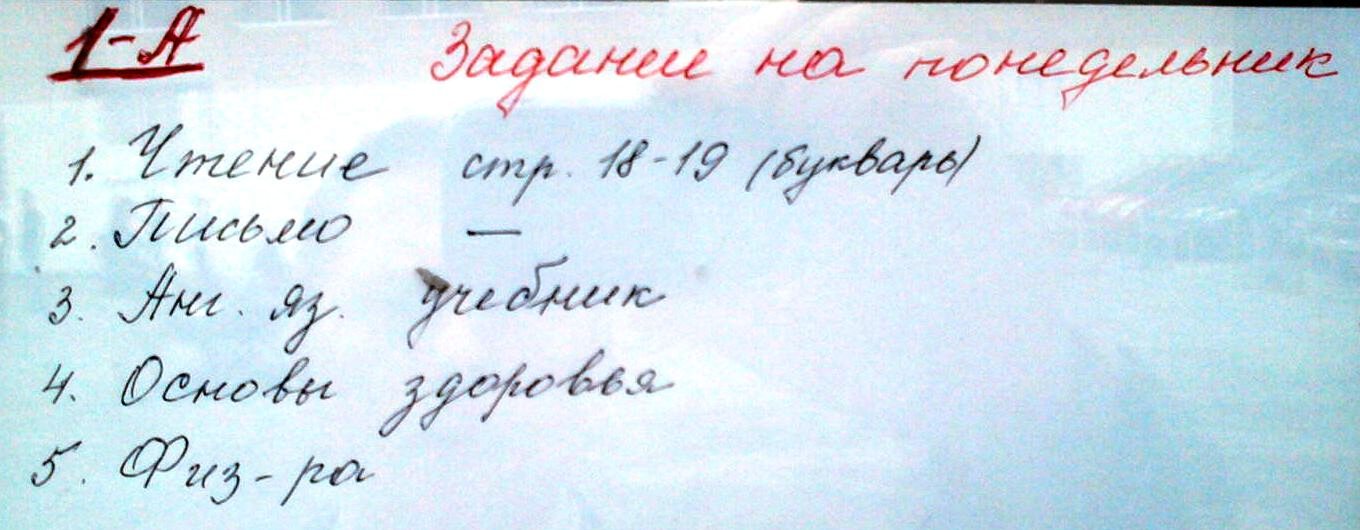 1-А Задание на понедельник
1. Чтение стр. 18-19 (букварь)
2. Письмо —
3. Анг. яз. учебник
4. Основы здоровья
5. Физ-ра